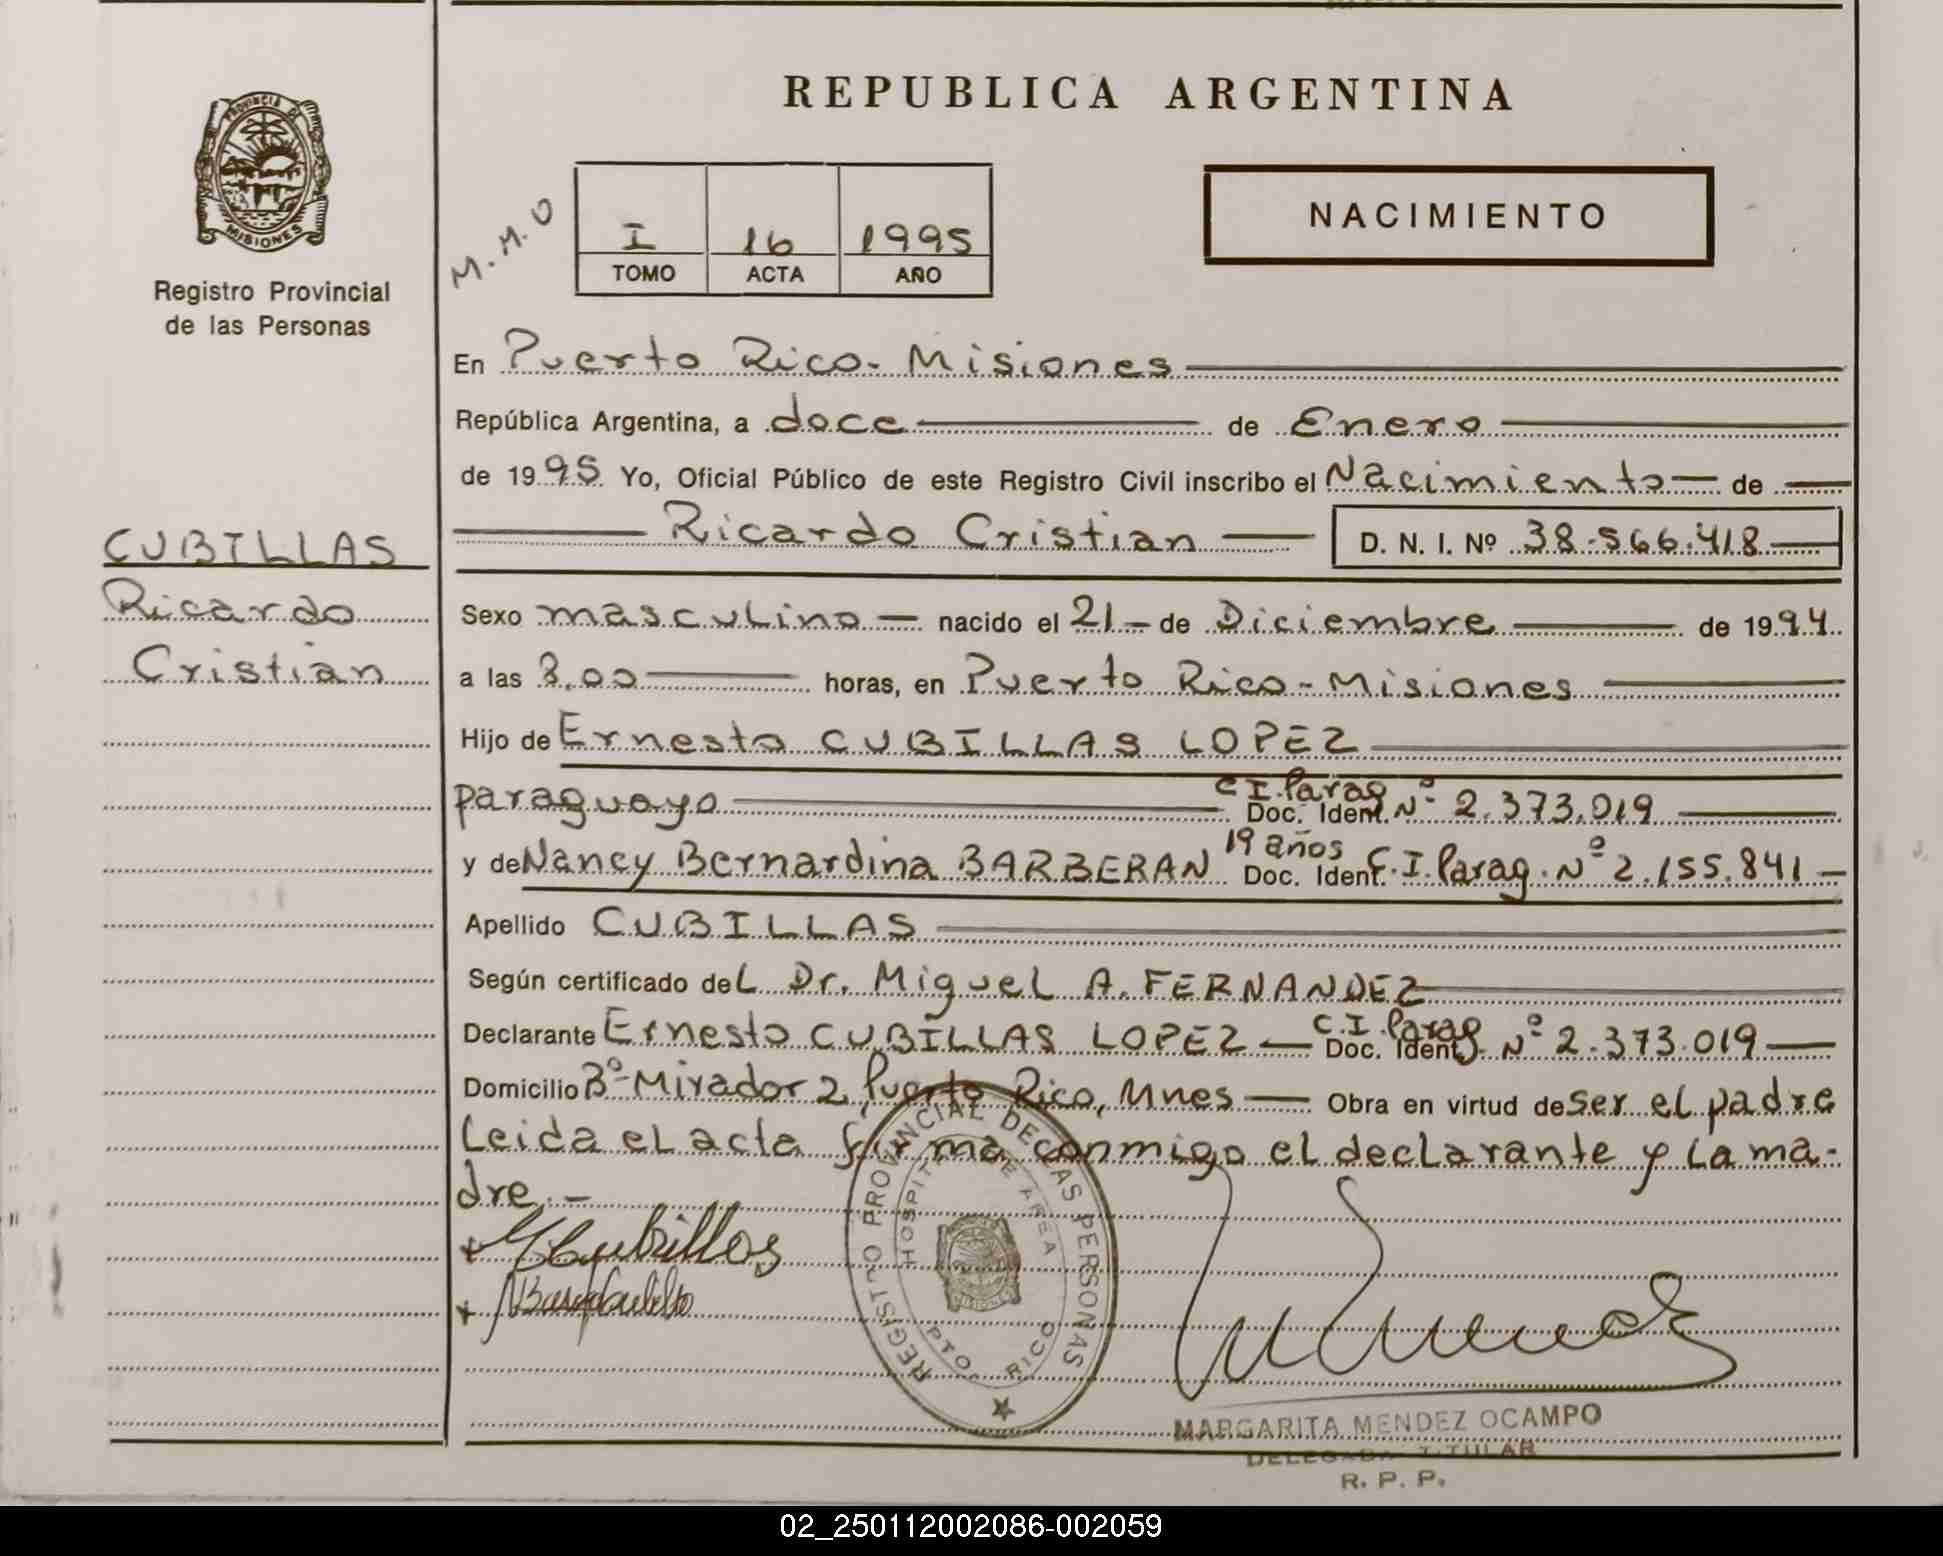 REPUBLICA ARGENTINA
PROVINCIA DE
MISIONES
Registro Provincial
de las Personas
M.M.O
I 16 1995
TOMO ACTA AÑO
NACIMIENTO
En Puerto Rico - Misiones
República Argentina, a doce de Enero
de 1995 Yo, Oficial Público de este Registro Civil inscribo el Nacimiento de
Ricardo Cristian D. N. I. Nº 38.566.418
CUBILLAS
Ricardo
Cristian
Sexo masculino nacido el 21 de Diciembre de 1994
a las 8,00 horas, en Puerto Rico - Misiones
Hijo de Ernesto CUBILLAS LOPEZ
paraguayo Doc. Ident. C I. Parag Nº 2.373.019
19 años
y de Nancy Bernardina BARBERAN Doc. Ident. C.I. Parag. Nº 2.155.841
Apellido CUBILLAS
Según certificado del Dr. Miguel A. FERNANDEZ
Declarante Ernesto CUBILLAS LOPEZ Doc. Ident. C.I. Parag Nº 2.373.019
Domicilio Bº Mirador 2, Puerto Rico, Mnes Obra en virtud de ser el padre
Leida el acta firma conmigo el declarante y la ma-
dre.-
REGISTRO PROVINCIAL DE LAS PERSONAS
HOSPITAL DE AREA
PTO. RICO
MISIONES
MARGARITA MENDEZ OCAMPO
DELEGADA TITULAR
R. P. P.
02_250112002086-002059